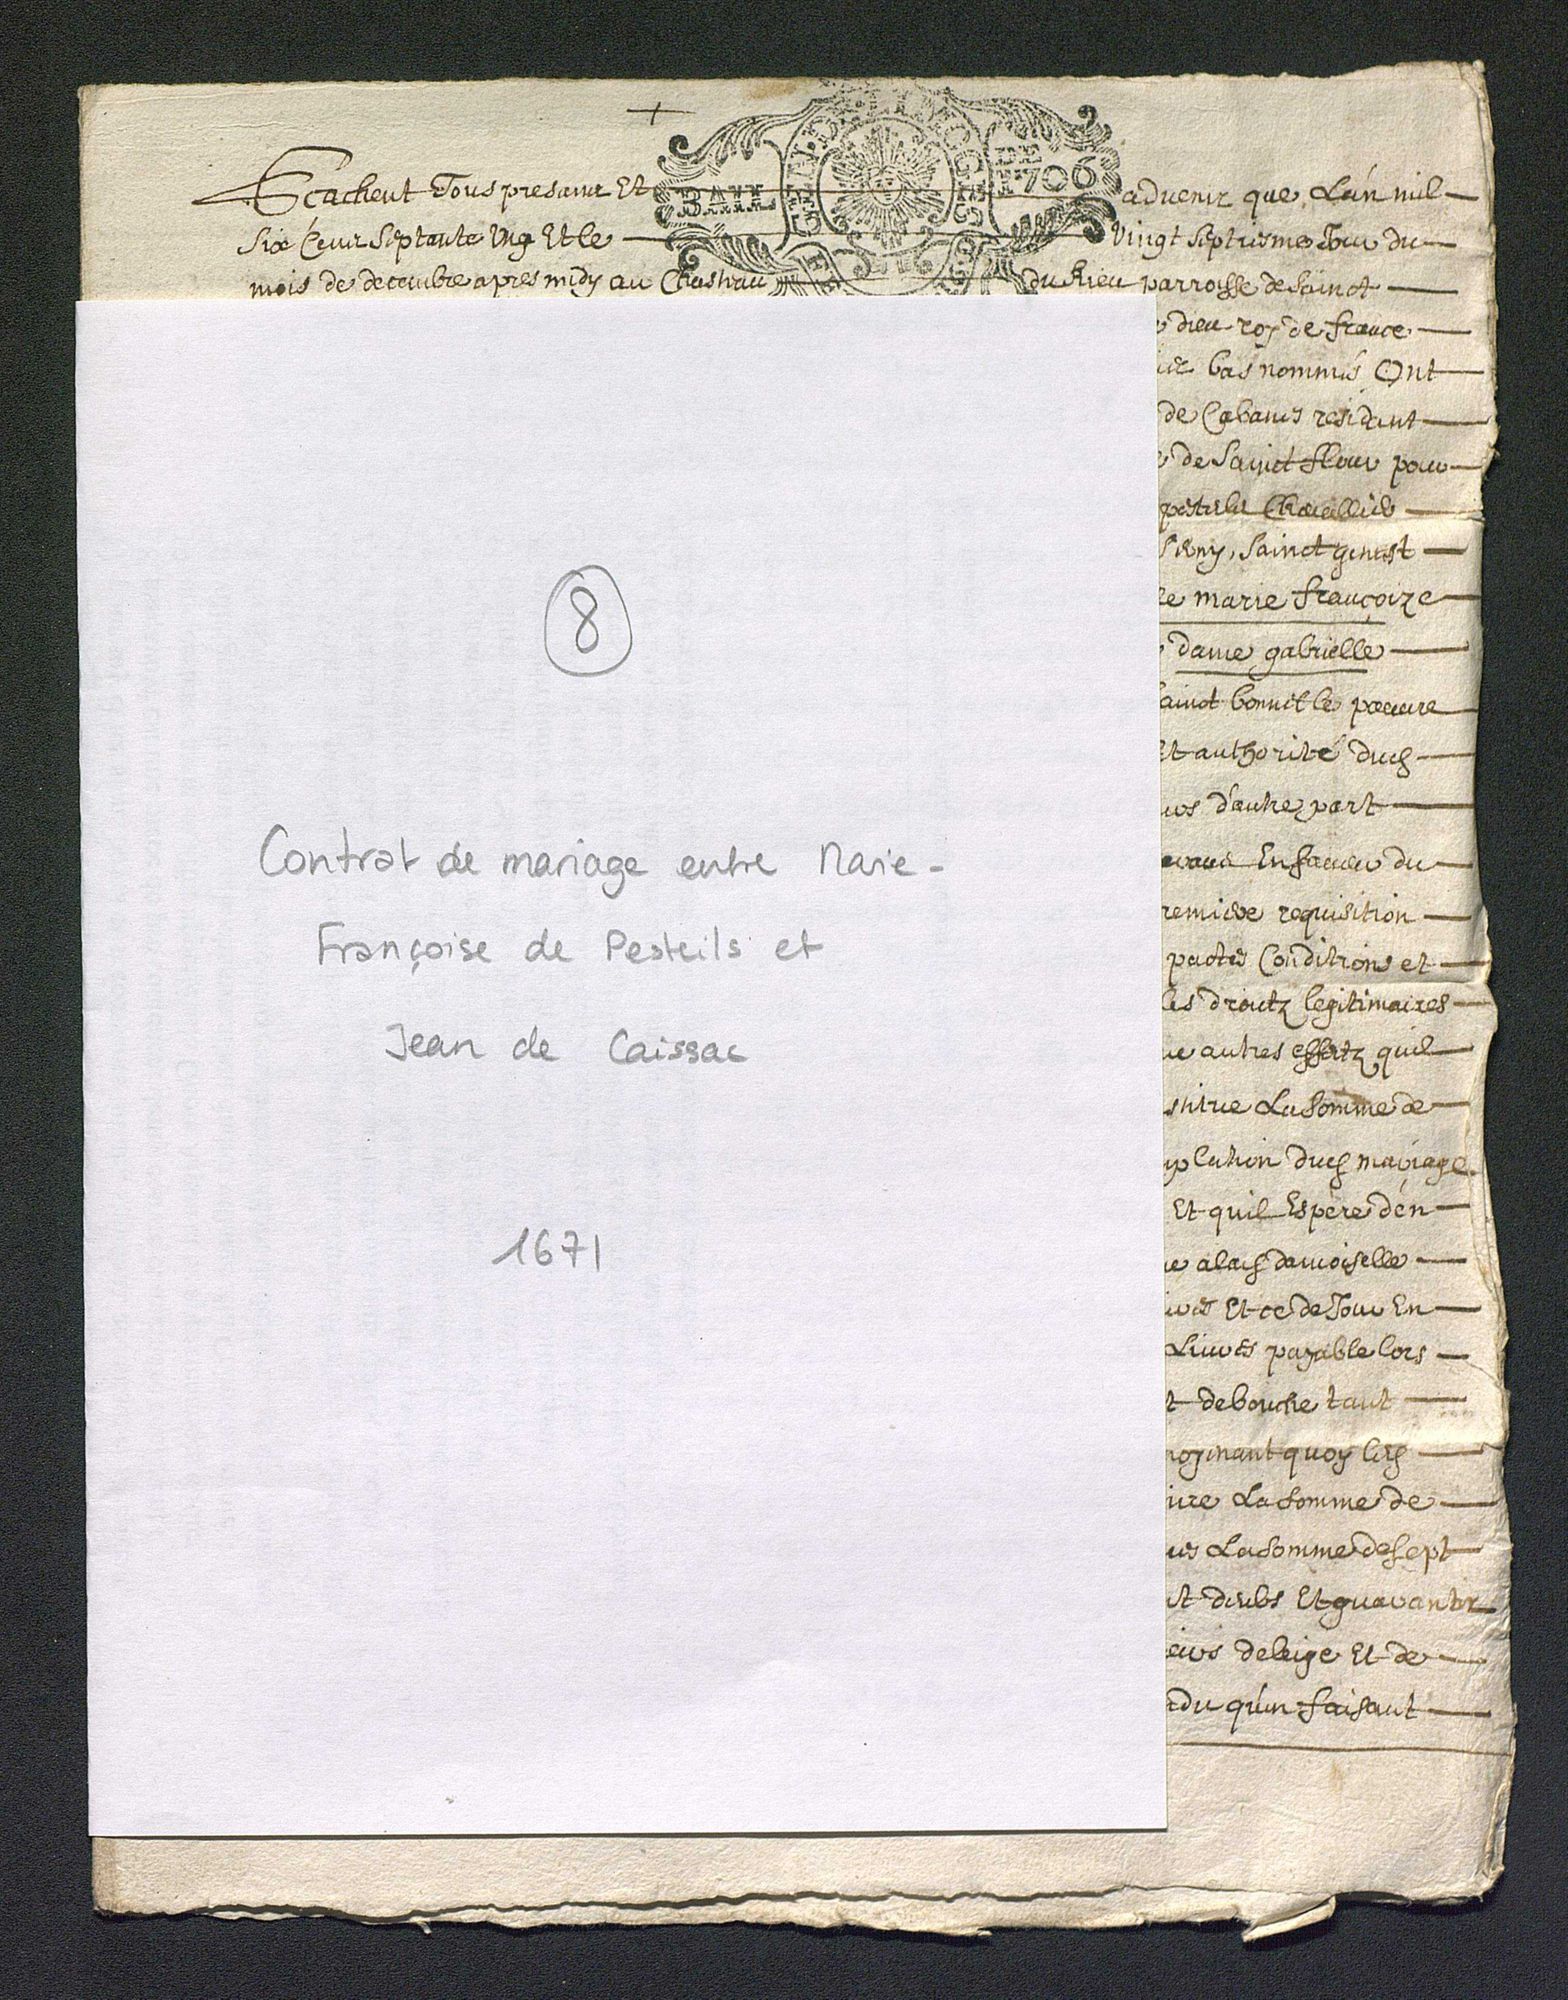 Scachent Tous presantz Et advenir que Lán mil
Six Centz Septante Ung Et le vingt septiesme Jour du
mois de decembre apres midy au Chasteau du Rieu parroisse de Sainct
BAIL
GEN. DE LIMOGES
DE 1706
dieu roy de france
bas nommés Ont
de Cabanes residant
de Sainct flour pour
pestels Chevallier
Sainct genest
marie françoize
dame gabrielle
Et authorité dud
d'autre part
En faveur du
requisition
pactes Conditions et
droictz legitimaires
autres effectz quil
La Somme de
dud mariage
Et quil Espere d'en
alad damoiselle
Et ce de Jour En
Livres payable lors
de bouche tant
quoy lesd
La Somme de
La Somme de sept
deubs Et
de leige Et de
qu'en faisant
8
Contrat de mariage entre Marie-
Françoise de Pesteils et
Jean de Caissac
1671